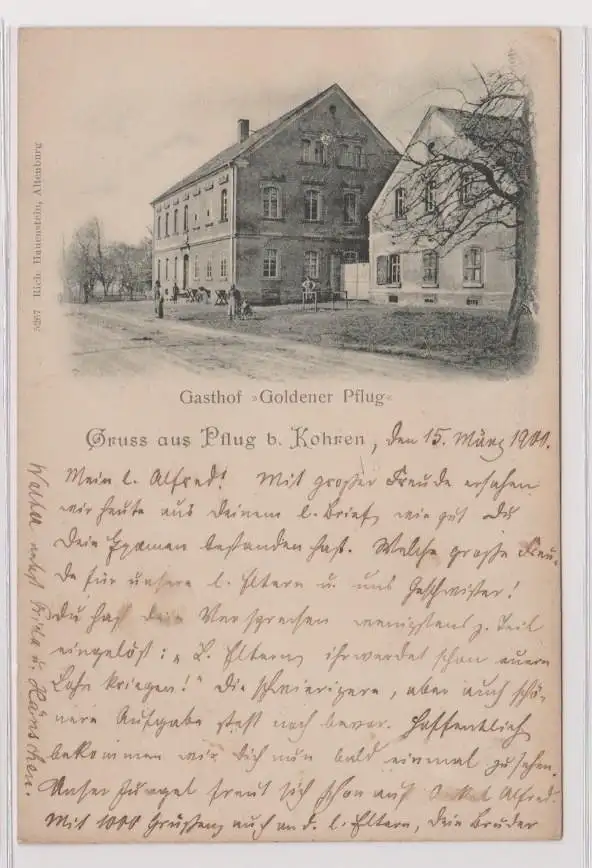 5267 Rich. Hauenstein, Altenburg
Gasthof »Goldener Pflug«
Gruss aus Pflug b. Kohren, den 15. März 1901.
Mein l. Alfred! Mit großer Freude ersahen
wir heute aus deinem l. Brief, wie gut du
dein Examen bestanden hast. Welche große Freu-
de für unsere l. Eltern u. uns Geschwister!
Du hast dein Versprechen wenigstens z. Teil
eingelöst: „L. Eltern, ihr werdet schon euern
Lohn kriegen!" Die schwierigere, aber auch schö-
nere Aufgabe steht noch bevor. Hoffentlich
bekommen wir dich nun bald einmal zu sehen.
Unser Junge freut sich schon auf Alfred.
Mit 1000 Grüßen, auch an d. l. Eltern, dein Bruder
Walther nebst Frida u. Hänschen.